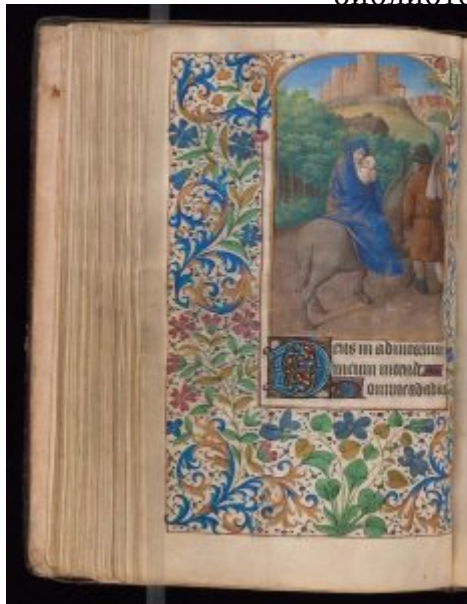 Deus in adiutorium
meum intende
Domine ad adiu